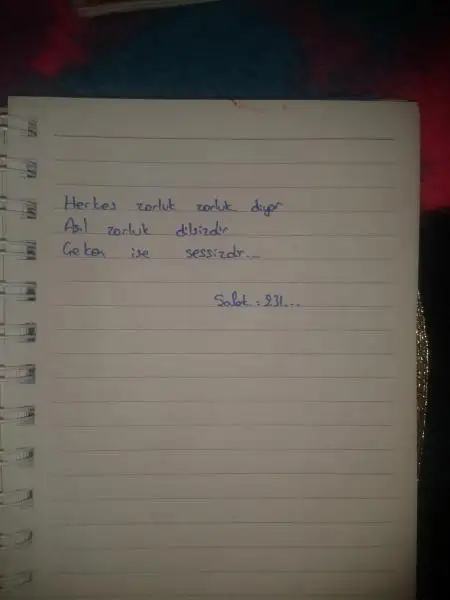 Herkes zorluk zorluk diyor
Asıl zorluk dilsizdir
Çeken ise sessizdir...
: 231...